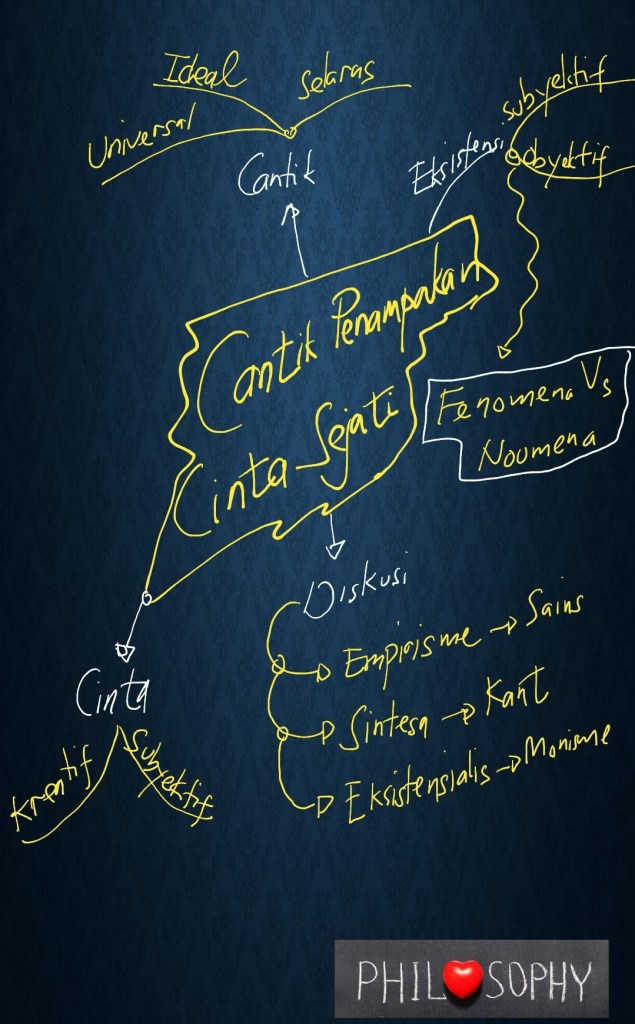 Ideal
Selaras
Universal
Cantik
Eksistensi
subyektif
obyektif
Cantik Penampakan
Cinta Sejati
Fenomena Vs
Noumena
Diskusi
Empirisme → Sains
Sintesa → Kant
Eksistensialis → Monisme
Cinta
Kreatif
Subyektif
PHIL❤SOPHY